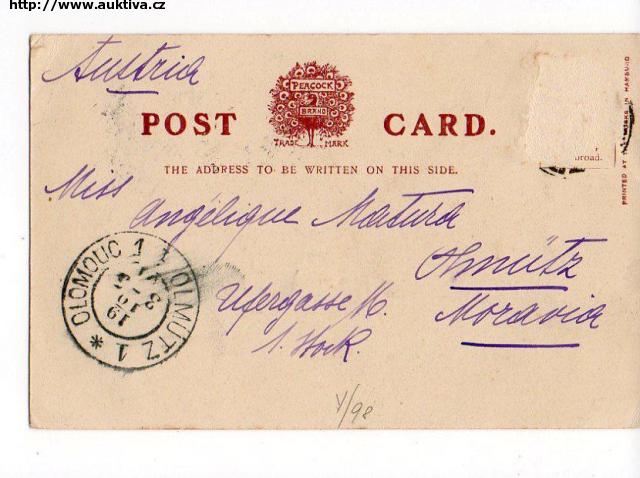 http://www.auktiva.cz
Austria
PEACOCK
BRAND
TRADE MARK
POST CARD.
THE ADDRESS TO BE WRITTEN ON THIS SIDE.
broad.
PRINTED AT THE WORKS IN HAMBURG
Miss
Angélique Matura
Olmütz
Ufergasse
Moravia
1. Stock.
OLOMOUC 1 1 OLMÜTZ 1 *